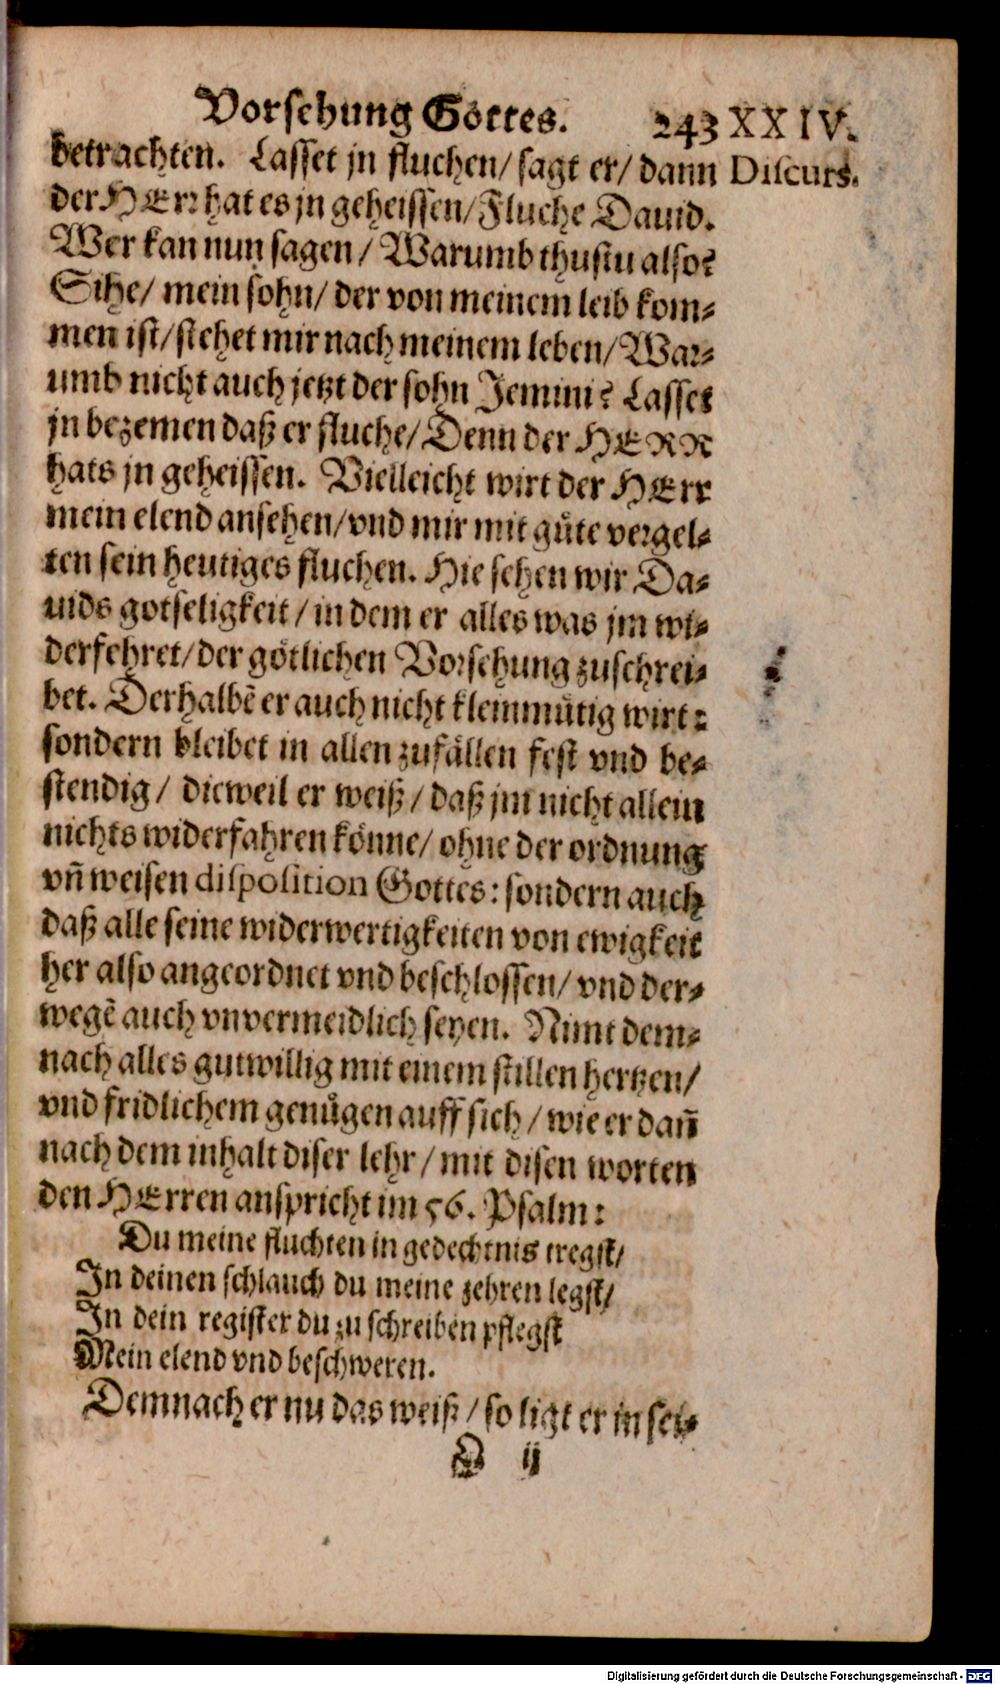 Vorsehung Gottes. 243 XXIV.
betrachten. Lasset jn fluchen/ sagt er/ dann Discurs.
der HErr hat es jn geheissen/ Fluche Dauid.
Wer kan nun sagen/ Warumb thustu also?
Sihe/ mein sohn/ der von meinem leib kom-
men ist/ stehet mir nach meinem leben/ War-
umb nicht auch jetzt der sohn Jemini? Lasset
jn bezemen daß er fluche/ Denn der HERR
hats jn geheissen. Vielleicht wirt der HErr
mein elend ansehen/ vnd mir mit guͤte vergel-
ten sein heutiges fluchen. Hie sehen wir Da-
uids gotseligkeit/ in dem er alles was jm wi-
derfehret/ der goͤtlichen Vorsehung zuschrei-
bet. Derhalbẽ er auch nicht kleinmuͤtig wirt:
sondern bleibet in allen zufaͤllen fest vnd be-
stendig/ dieweil er weiß/ daß jm nicht allein
nichts widerfahren koͤnne/ ohne der ordnung
vñ weisen disposition Gottes: sondern auch
daß alle seine widerwertigkeiten von ewigkeit
her also angeordnet vnd beschlossen/ vnd der-
wegẽ auch vnvermeidlich seyen. Nimt dem-
nach alles gutwillig mit einem stillen hertzen/
vnd fridlichem genuͤgen auff sich/ wie er dañ
nach dem inhalt diser lehr/ mit disen worten
den HErren anspricht im 56. Psalm:
Du meine fluchten in gedechtnis tregst/
In deinen schlauch du meine zehren legst/
In dein register du zu schreiben pflegst
Mein elend vnd beschweren.
Demnach er nu das weiß/ so ligt er in sei-
Q ij
Digitalisierung gefördert durch die Deutsche Forschungsgemeinschaft - DFG